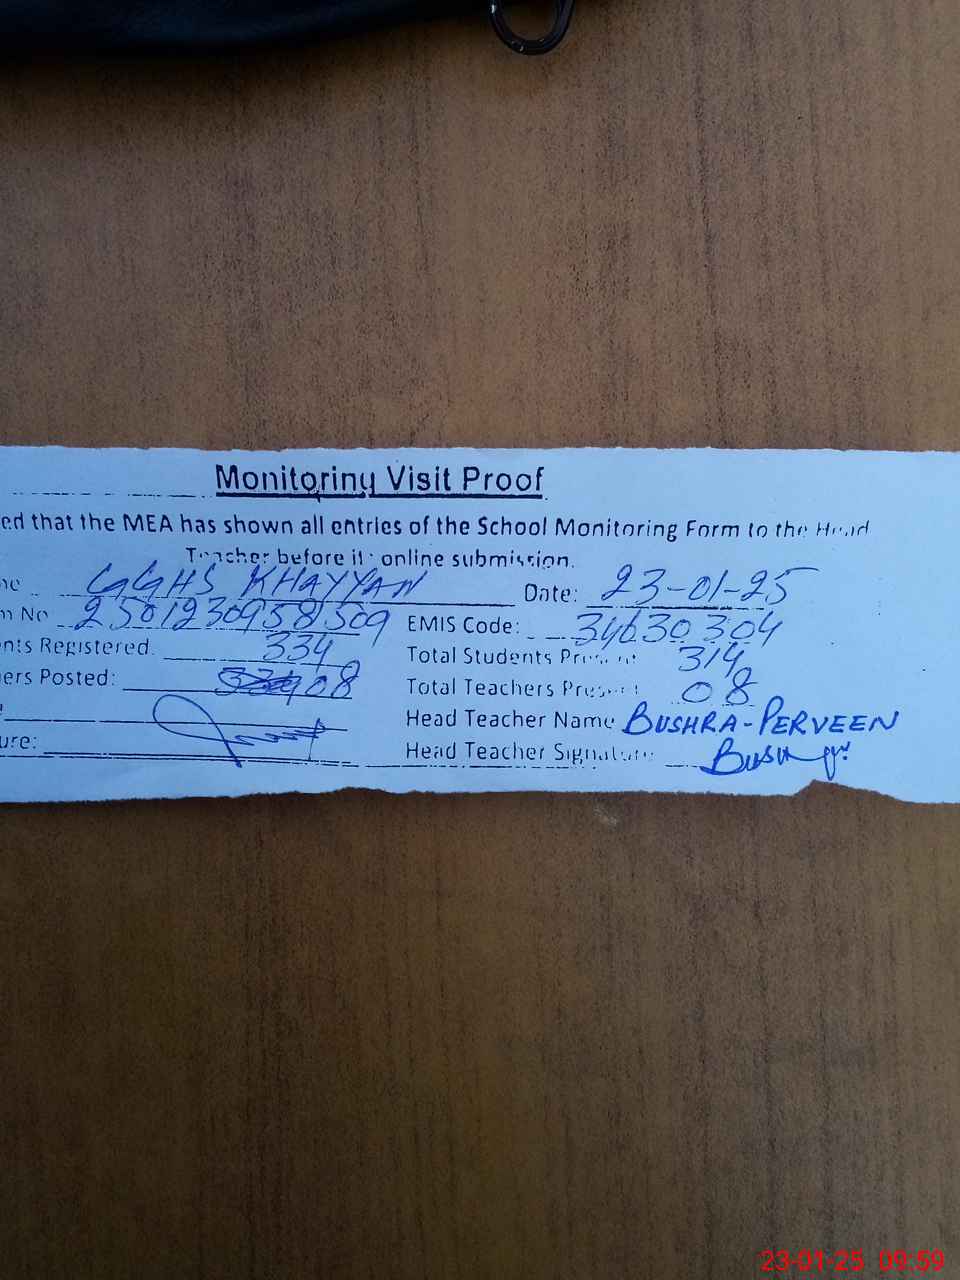 Monitoring Visit Proof
ed that the MEA has shown all entries of the School Monitoring Form to the Head
Teacher before it online submission.
GGHS KHAYYAN Date: 23-01-25
No 250123095 509 EMIS Code: 34630304
nts Registered. 334 Total Students Present 314
ers Posted: 08 Total Teachers Present 08
Head Teacher Name BUSHRA-PERVEEN
ure: Head Teacher Signature
23-01-25 09:59